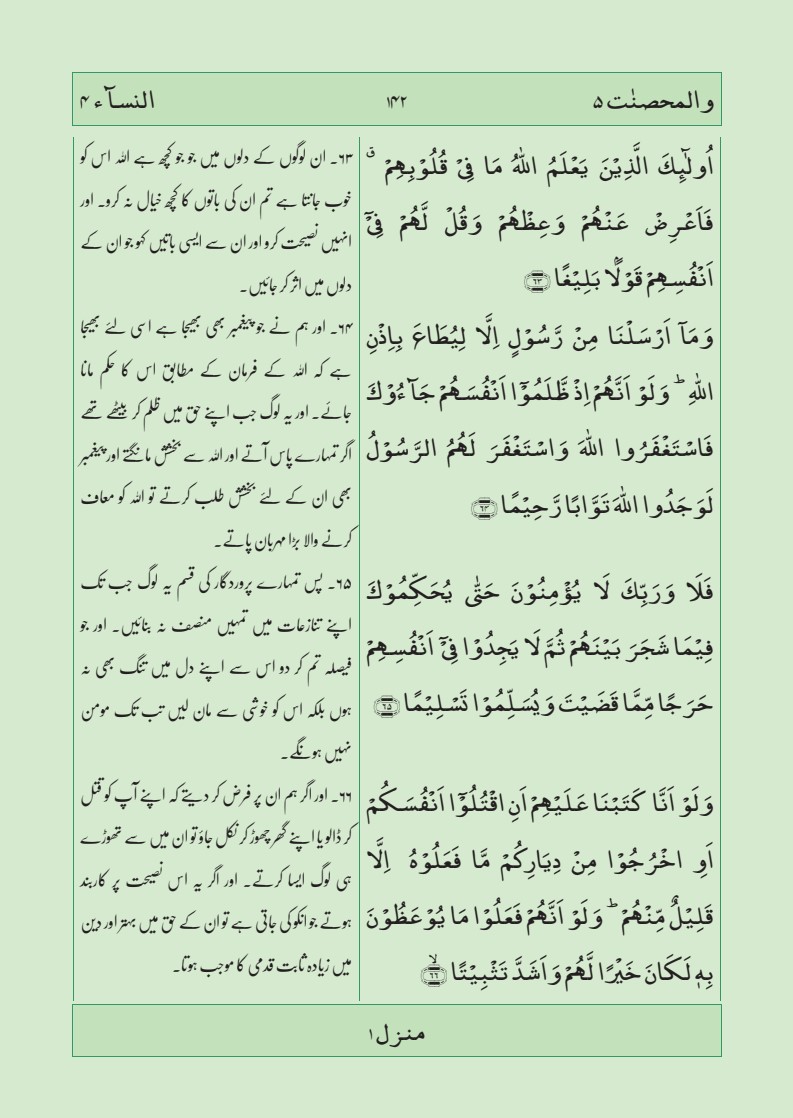 والمحصنٰت ۵
۱۴۲
النسآء ۴
اُولٰٓئِكَ الَّذِيۡنَ يَعۡلَمُ اللّٰهُ مَا فِىۡ قُلُوۡبِهِمۡ ۚ
فَاَعۡرِضۡ عَنۡهُمۡ وَعِظۡهُمۡ وَقُلۡ لَّهُمۡ فِىۡۤ
اَنۡفُسِهِمۡ قَوۡلًۢا بَلِيۡغًا ۶۳
وَمَاۤ اَرۡسَلۡنَا مِنۡ رَّسُوۡلٍ اِلَّا لِيُطَاعَ بِاِذۡنِ
اللّٰهِ ؕ وَلَوۡ اَنَّهُمۡ اِذْ ظَّلَمُوۡۤا اَنۡفُسَهُمۡ جَآءُوۡكَ
فَاسۡتَغۡفَرُوا اللّٰهَ وَاسۡتَغۡفَرَ لَهُمُ الرَّسُوۡلُ
لَوَجَدُوا اللّٰهَ تَوَّابًا رَّحِيۡمًا ۶۴
فَلَا وَرَبِّكَ لَا يُؤۡمِنُوۡنَ حَتّٰى يُحَكِّمُوۡكَ
فِيۡمَا شَجَرَ بَيۡنَهُمۡ ثُمَّ لَا يَجِدُوۡا فِىۡۤ اَنۡفُسِهِمۡ
حَرَجًا مِّمَّا قَضَيۡتَ وَيُسَلِّمُوۡا تَسۡلِيۡمًا ۶۵
وَلَوۡ اَنَّا كَتَبۡنَا عَلَيۡهِمۡ اَنِ اقۡتُلُوۡۤا اَنۡفُسَكُمۡ
اَوِ اخۡرُجُوۡا مِنۡ دِيَارِكُمۡ مَّا فَعَلُوۡهُ اِلَّا
قَلِيۡلٌ مِّنۡهُمۡ ؕ وَلَوۡ اَنَّهُمۡ فَعَلُوۡا مَا يُوۡعَظُوۡنَ
بِهٖ لَـكَانَ خَيۡرًا لَّهُمۡ وَاَشَدَّ تَثۡبِيۡتًا ۙ ۶۶
۶۳۔ ان لوگوں کے دلوں میں جو جو کچھ ہے اللہ اس کو
خوب جانتا ہے تم ان کی باتوں کا کچھ خیال نہ کرو۔ اور
انہیں نصیحت کرو اور ان سے ایسی باتیں کہو جو ان کے
دلوں میں اثر کر جائیں۔
۶۴۔ اور ہم نے جو پیغمبر بھی بھیجا ہے اسی لئے بھیجا
ہے کہ اللہ کے فرمان کے مطابق اس کا حکم مانا
جائے۔ اور یہ لوگ جب اپنے حق میں ظلم کر بیٹھے تھے
اگر تمہارے پاس آتے اور اللہ سے بخشش مانگتے اور پیغمبر
بھی ان کے لئے بخشش طلب کرتے تو اللہ کو معاف
کرنے والا بڑا مہربان پاتے۔
۶۵۔ پس تمہارے پروردگار کی قسم یہ لوگ جب تک
اپنے تنازعات میں تمہیں منصف نہ بنائیں۔ اور جو
فیصلہ تم کر دو اس سے اپنے دل میں تنگ بھی نہ
ہوں بلکہ اس کو خوشی سے مان لیں تب تک مومن
نہیں ہونگے۔
۶۶۔ اور اگر ہم ان پر فرض کر دیتے کہ اپنے آپ کو قتل
کر ڈالو یا اپنے گھر چھوڑ کر نکل جاؤ تو ان میں سے تھوڑے
ہی لوگ ایسا کرتے۔ اور اگر یہ اس نصیحت پر کاربند
ہوتے جو انکو کی جاتی ہے تو ان کے حق میں بہتر اور دین
میں زیادہ ثابت قدمی کا موجب ہوتا۔
منزل ۱